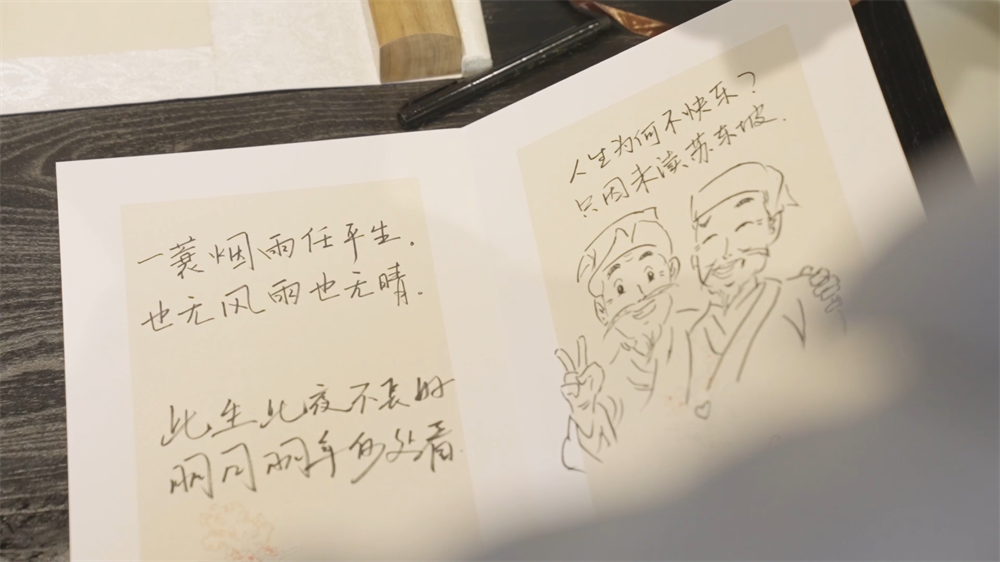 一蓑烟雨任平生.
也无风雨也无晴.
此生此夜不长好
明月明年何处看
人生为何不快乐?
只因未读苏东坡.